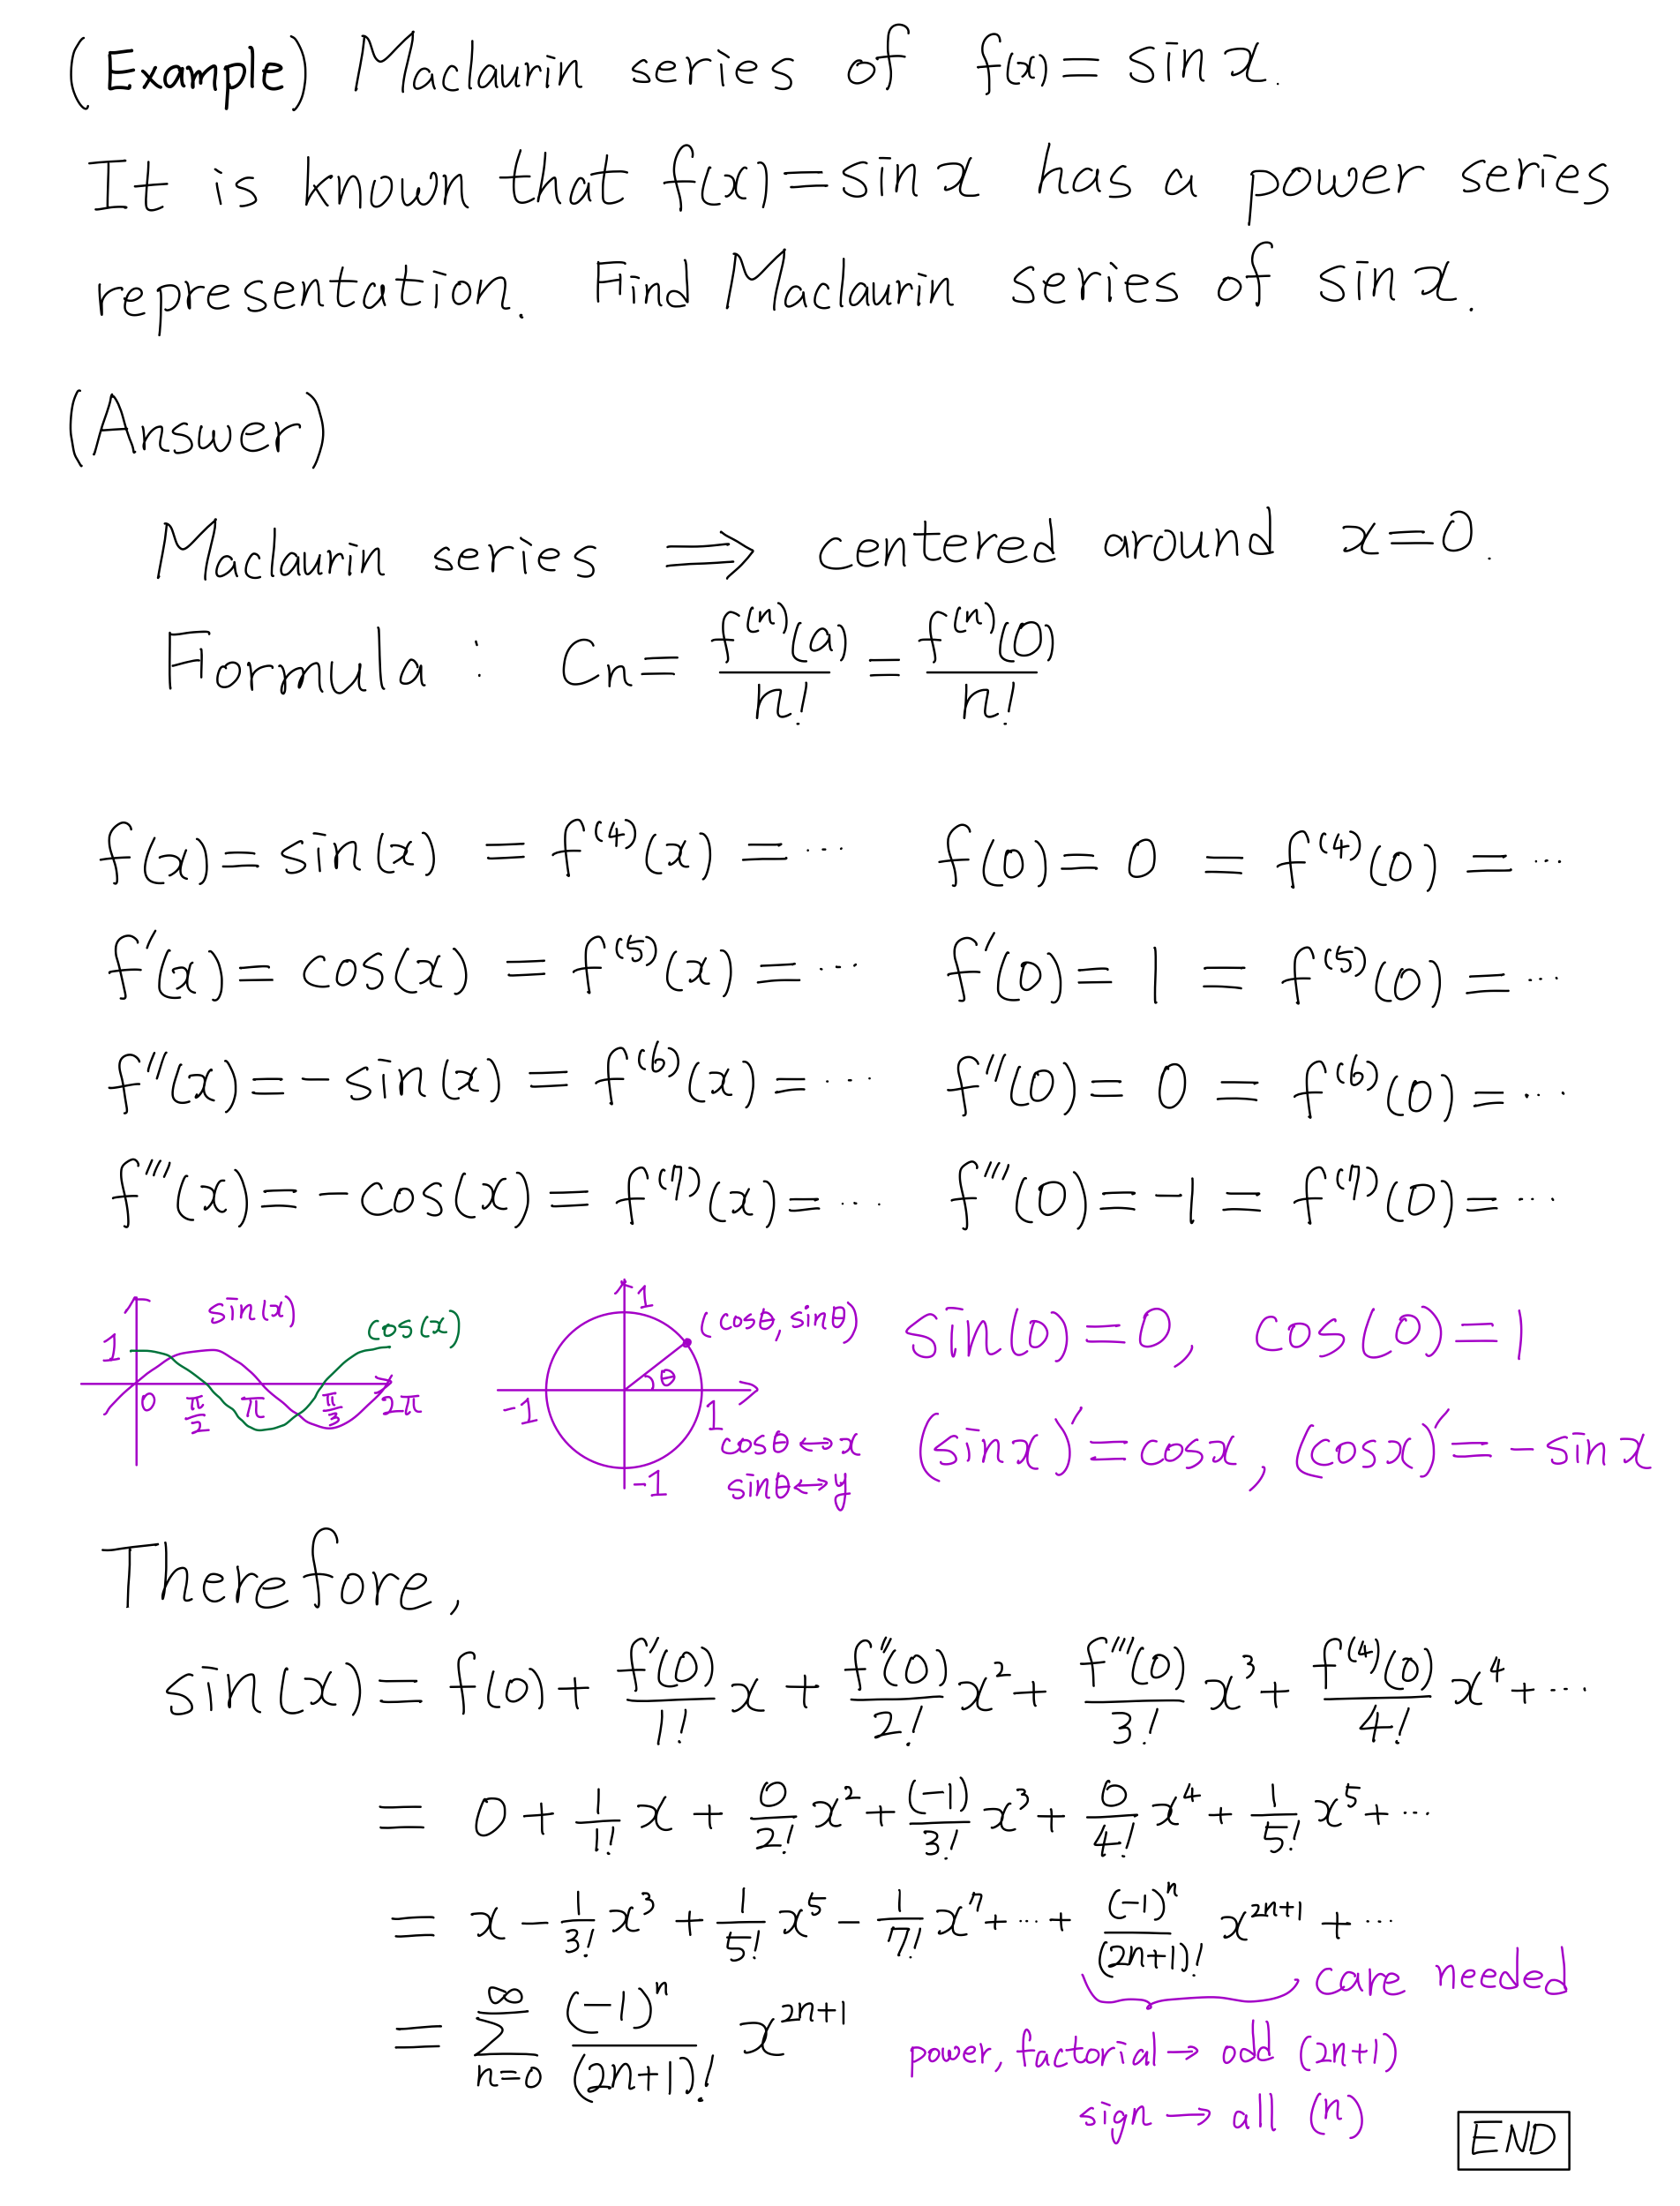 (Example) Maclaurin series of f(x) = sin x.
It is known that f(x) = sin x has a power series
representation. Find Maclaurin series of sin x.
(Answer)
Maclaurin series ⟹ centered around x=0.
Formula : Cn = f⁽ⁿ⁾(a)/n! = f⁽ⁿ⁾(0)/n!
f(x) = sin(x) = f⁽⁴⁾(x) = ··· f(0) = 0 = f⁽⁴⁾(0) = ···
f'(x) = cos(x) = f⁽⁵⁾(x) = ··· f'(0) = 1 = f⁽⁵⁾(0) = ···
f''(x) = -sin(x) = f⁽⁶⁾(x) = ··· f''(0) = 0 = f⁽⁶⁾(0) = ···
f'''(x) = -cos(x) = f⁽⁷⁾(x) = ··· f'''(0) = -1 = f⁽⁷⁾(0) = ···
sin(x)
cos(x)
1
0 π/2 π π/3 2π
1
(cosθ, sinθ)
θ
-1 1
-1
cosθ ↔ x
sinθ ↔ y
sin(0) = 0, cos(0) = 1
(sin x)' = cos x, (cos x)' = -sin x
Therefore,
sin(x) = f(0) + f'(0)/1! x + f''(0)/2! x² + f'''(0)/3! x³ + f⁽⁴⁾(0)/4! x⁴ + ···
= 0 + 1/1! x + 0/2! x² + (-1)/3! x³ + 0/4! x⁴ + 1/5! x⁵ + ···
= x - 1/3! x³ + 1/5! x⁵ - 1/7! x⁷ + ··· + (-1)ⁿ/(2n+1)! x²ⁿ⁺¹ + ···
care needed
= ∑ n=0 ∞ (-1)ⁿ/(2n+1)! x²ⁿ⁺¹
power, factorial → odd (2n+1)
sign → all (n)
END